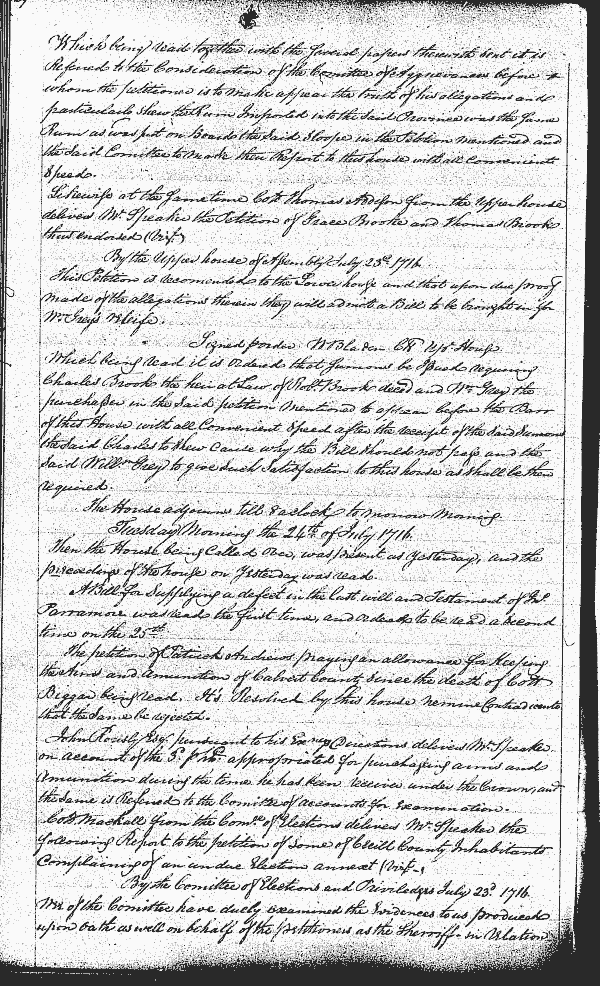 Which being read together with the Several papers therewith sent it is
Referred to the Consideration of the Comittee of Aggrievances before
whom the petitioner is to make appear the truth of his allegations and
particularly shew the Rum Imported into the Said Province was the Same
Rum as was put on Board the Said Sloope in the Petition mentioned and
the Said Comittee to make their Report to this house with all Convenient
Speed.
Likewise at the Same time Coll Thomas Addison from the Upper house
delivers Mr Speaker the Petition of Grace Brooke and Thomas Brook
thus endorsed (Vizt)
By the Upper house of Assembly July 23d 1716
This Petition is recomended to the Lower house and that upon due proof
made of the allegations therein they will admit a Bill to be brought in for
Mr Greys Wife.
Signed p order W Bladen Cl Upr House
Which being read it is Ordered that Sumons be Issued requiring
Charles Brook the heir at Law of Robt Brook deced and Wm Grey the
purchaser in the Said petition Mentioned to appear before the Barr
of this House with all Convenient Speed after the receipt of the Said Sumons
the Said Charles to Shew Cause why the Bill Should not pass and the
Said Willm Grey to give Such Satisfaction to this house as shall be then
required.
The House adjourns till 8 a clock to morrow Morning
Tuesday Morning the 24th of July 1716.
Then the House being Called over, was present as Yesterday, and the
preceedings of the house on Yesterday was read.
A Bill for Supplying a defect in the last will and Testament of Jno
Parramore was read the first time, and ordered to be read a Second
time on the 25th
The petition of Patrick Andrews praying an allowance for Keeping
the Arms and Amunition of Calvert County Since the death of Coll
Biggar being read. It's Resolved by this house nemine Contradicente
that the Same be rejected.
John Rousby Esqr pursuant to his Directions delivers Mr Speaker
an account of the 3d p hhd appropriated for purchasing arms and
Amunition during the time he has been receiver under the Crown, and
the Same is Referred to the Comittee of accounts for Examination.
Coll Mackall from the Comee of Elections delivers Mr Speaker the
following Report to the petition of Some of Cecill County Inhabitants
Complaining of an undue Election annext (Vizt)
By the Comittee of Elections and Priviledges July 23d 1716
We of the Comittee have duely examined the Evidences to us produced
upon Oath as well on behalf of the petitioners as the Sherriff in Relation